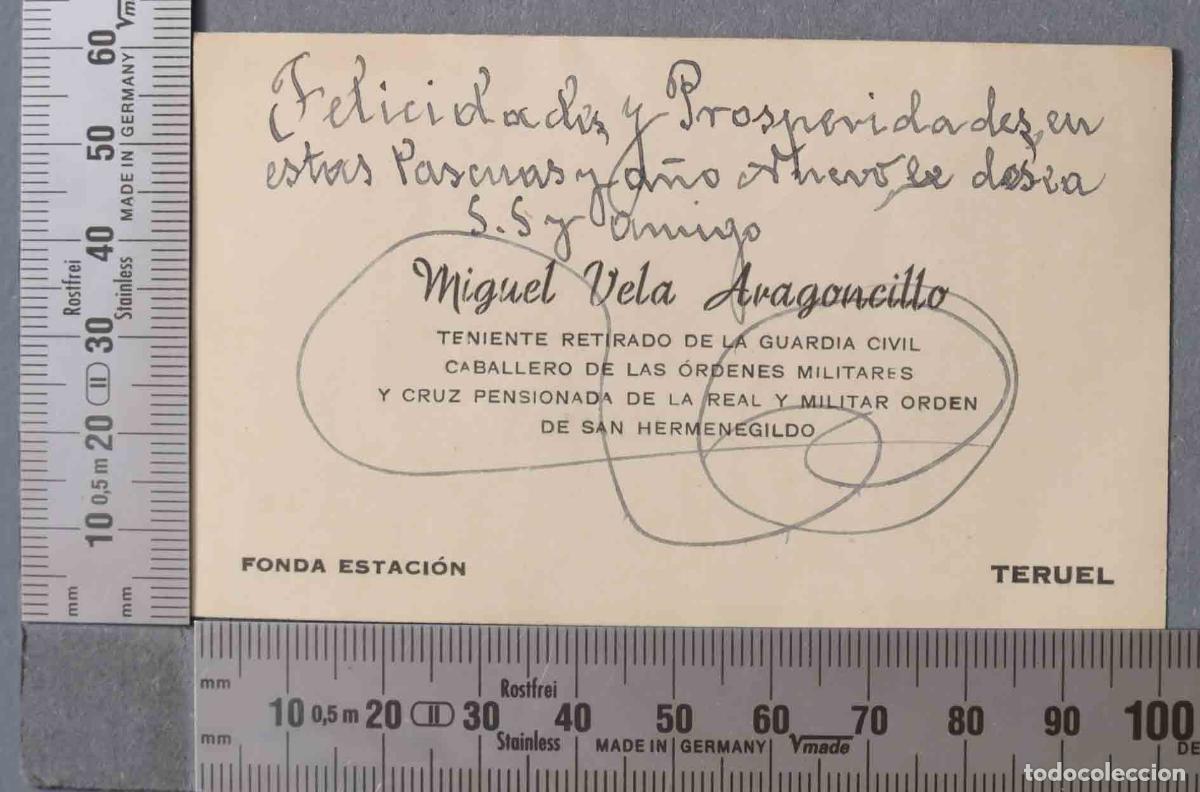 Felicidades y Prosperidades, en
estas Pascuas y año Nuevo, le desea
S.S y amigo
Miguel Vela Aragoncillo
TENIENTE RETIRADO DE LA GUARDIA CIVIL
CABALLERO DE LAS ÓRDENES MILITARES
Y CRUZ PENSIONADA DE LA REAL Y MILITAR ORDEN
DE SAN HERMENEGILDO
FONDA ESTACIÓN
TERUEL
60
50
40
30
20
10
0,5 m
MADE IN GERMANY
Vm
Rostfrei
Stainless
mm
mm
mm
mm
10 0,5 m 20 30 40 50 60 70 80 90 100
Rostfrei
Stainless MADE IN GERMANY Vmade
DE
todocoleccion